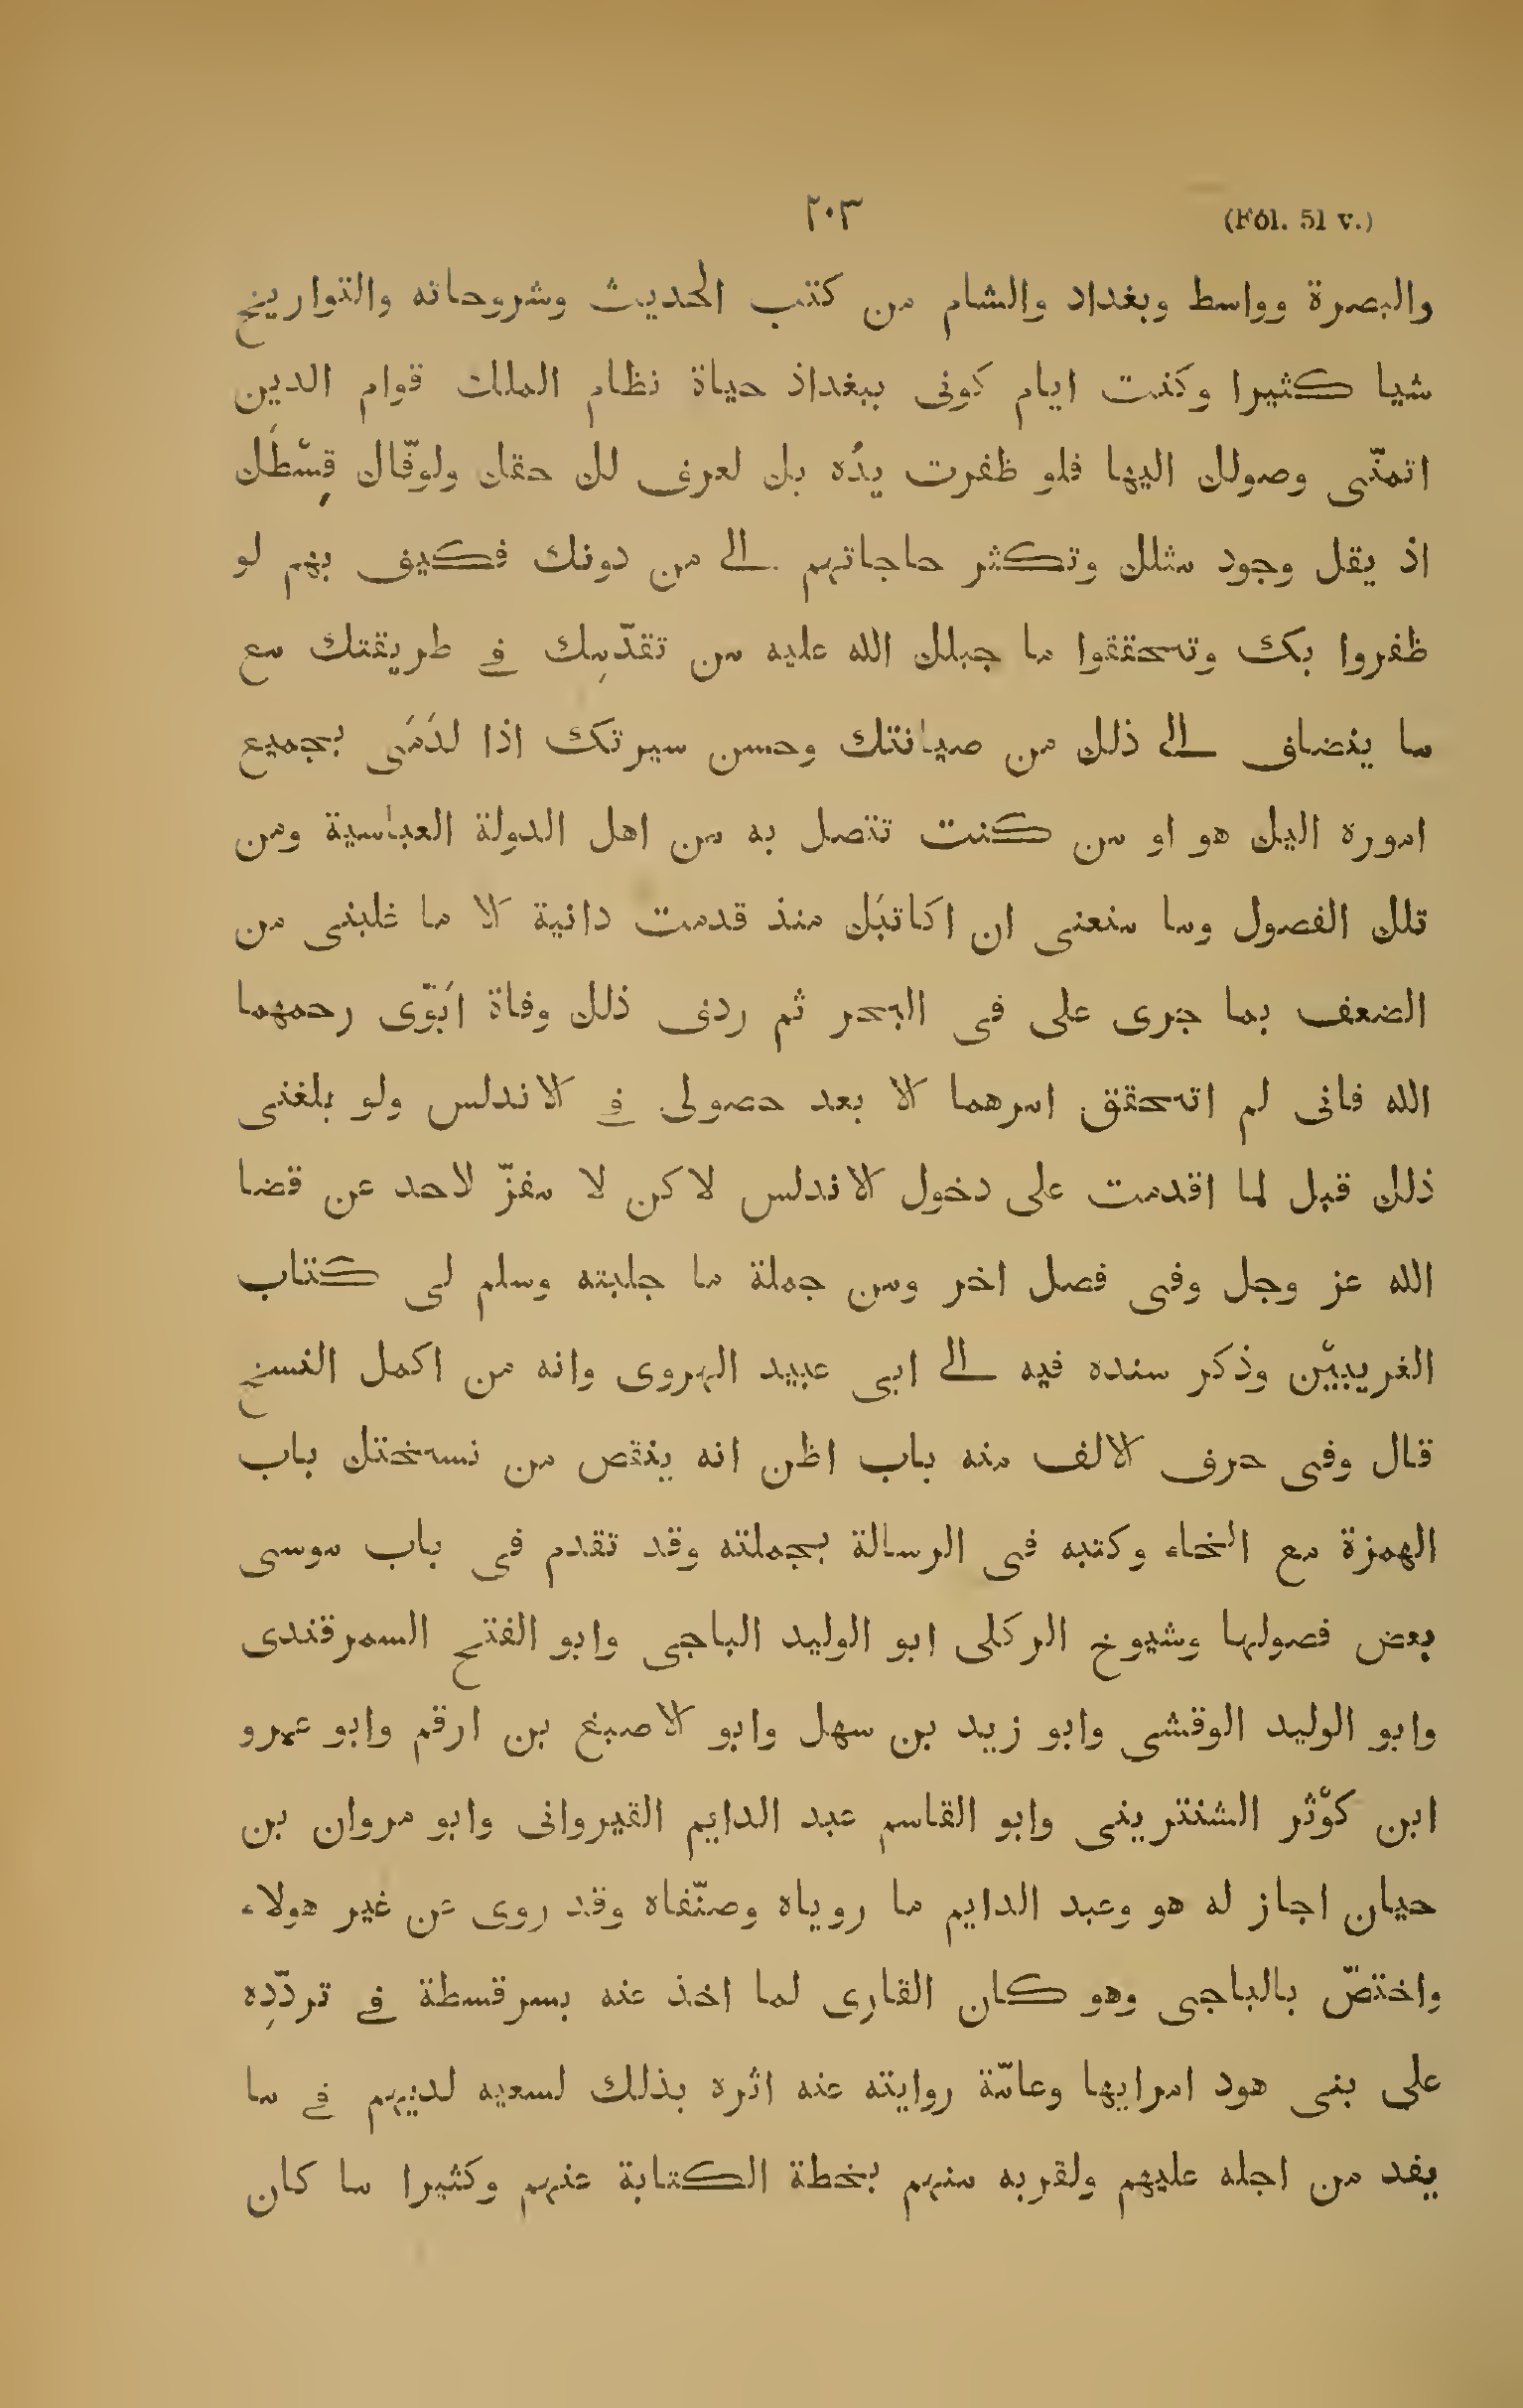 (Fól. 51 v.) ٢٠٣
والبصرة وواسط وبغداد والشام من كتب الحديث وشروحاته والتواريخ
شيا كثيرا وكنت ايام كونى ببغداذ حياة نظام الملك قوام الدين
اتمنّى وصولك اليها فلو ظفرت يدُه بك لعرف لك حقك ولوفّاك قِسْطَك
اذ يقل وجود مثلك وتكثر حاجاتهم الى من دونك فكيف بهم لو
ظفروا بك وتحققوا ما جبلك الله عليه من تقدّمِك فى طريقتك مع
ما ينضاف الى ذلك من صيانتك وحسن سيرتك اذا لدَمَى بجميع
اموره اليك هو او من كنت تتصل به من اهل الدولة العباسية ومن
تلك الفصول وما منعنى ان اكاتبَك منذ قدمت دانية الا ما غلبنى من
الضعف بما جرى على فى البحر ثم ردنى ذلك وفاة ابَوّى رحمهما
الله فانى لم اتحقق امرهما الا بعد حصولى فى الاندلس ولو بلغنى
ذلك قبل لما اقدمت على دخول الاندلس لاكن لا مفرّ لاحد عن قضا
الله عز وجل وفى فصل اخر ومن جملة ما جلبته وسلم لى كتاب
الغريبيْن وذكر سنده فيه الى ابى عبيد الهروى وانه من اكمل النسخ
قال وفى حرف الالف منه باب اظن انه ينقص من نسختك باب
الهمزة مع الخاء وكتبه فى الرسالة بجملته وقد تقدم فى باب موسى
بعض فصولها وشيوخ الركلى ابو الوليد الباجى وابو الفتح السمرقندى
وابو الوليد الوقشى وابو زيد بن سهل وابو الاصبغ بن ارقم وابو عمرو
ابن كوْثر الشنترينى وابو القاسم عبد الدايم القيروانى وابو مروان بن
حيان اجاز له هو وعبد الدايم ما روياه وصنّفاه وقد روى عن غير هولاء
واختصّ بالباجى وهو كان القارى لما اخذ عنه بسرقسطة فى تردّدِه
على بنى هود امرايها وعامّة روايته عنه اثره بذلك لسعيه لديهم فى ما
يفد من اجله عليهم ولقربه منهم بخطة الكتابة عنهم وكثيرا ما كان